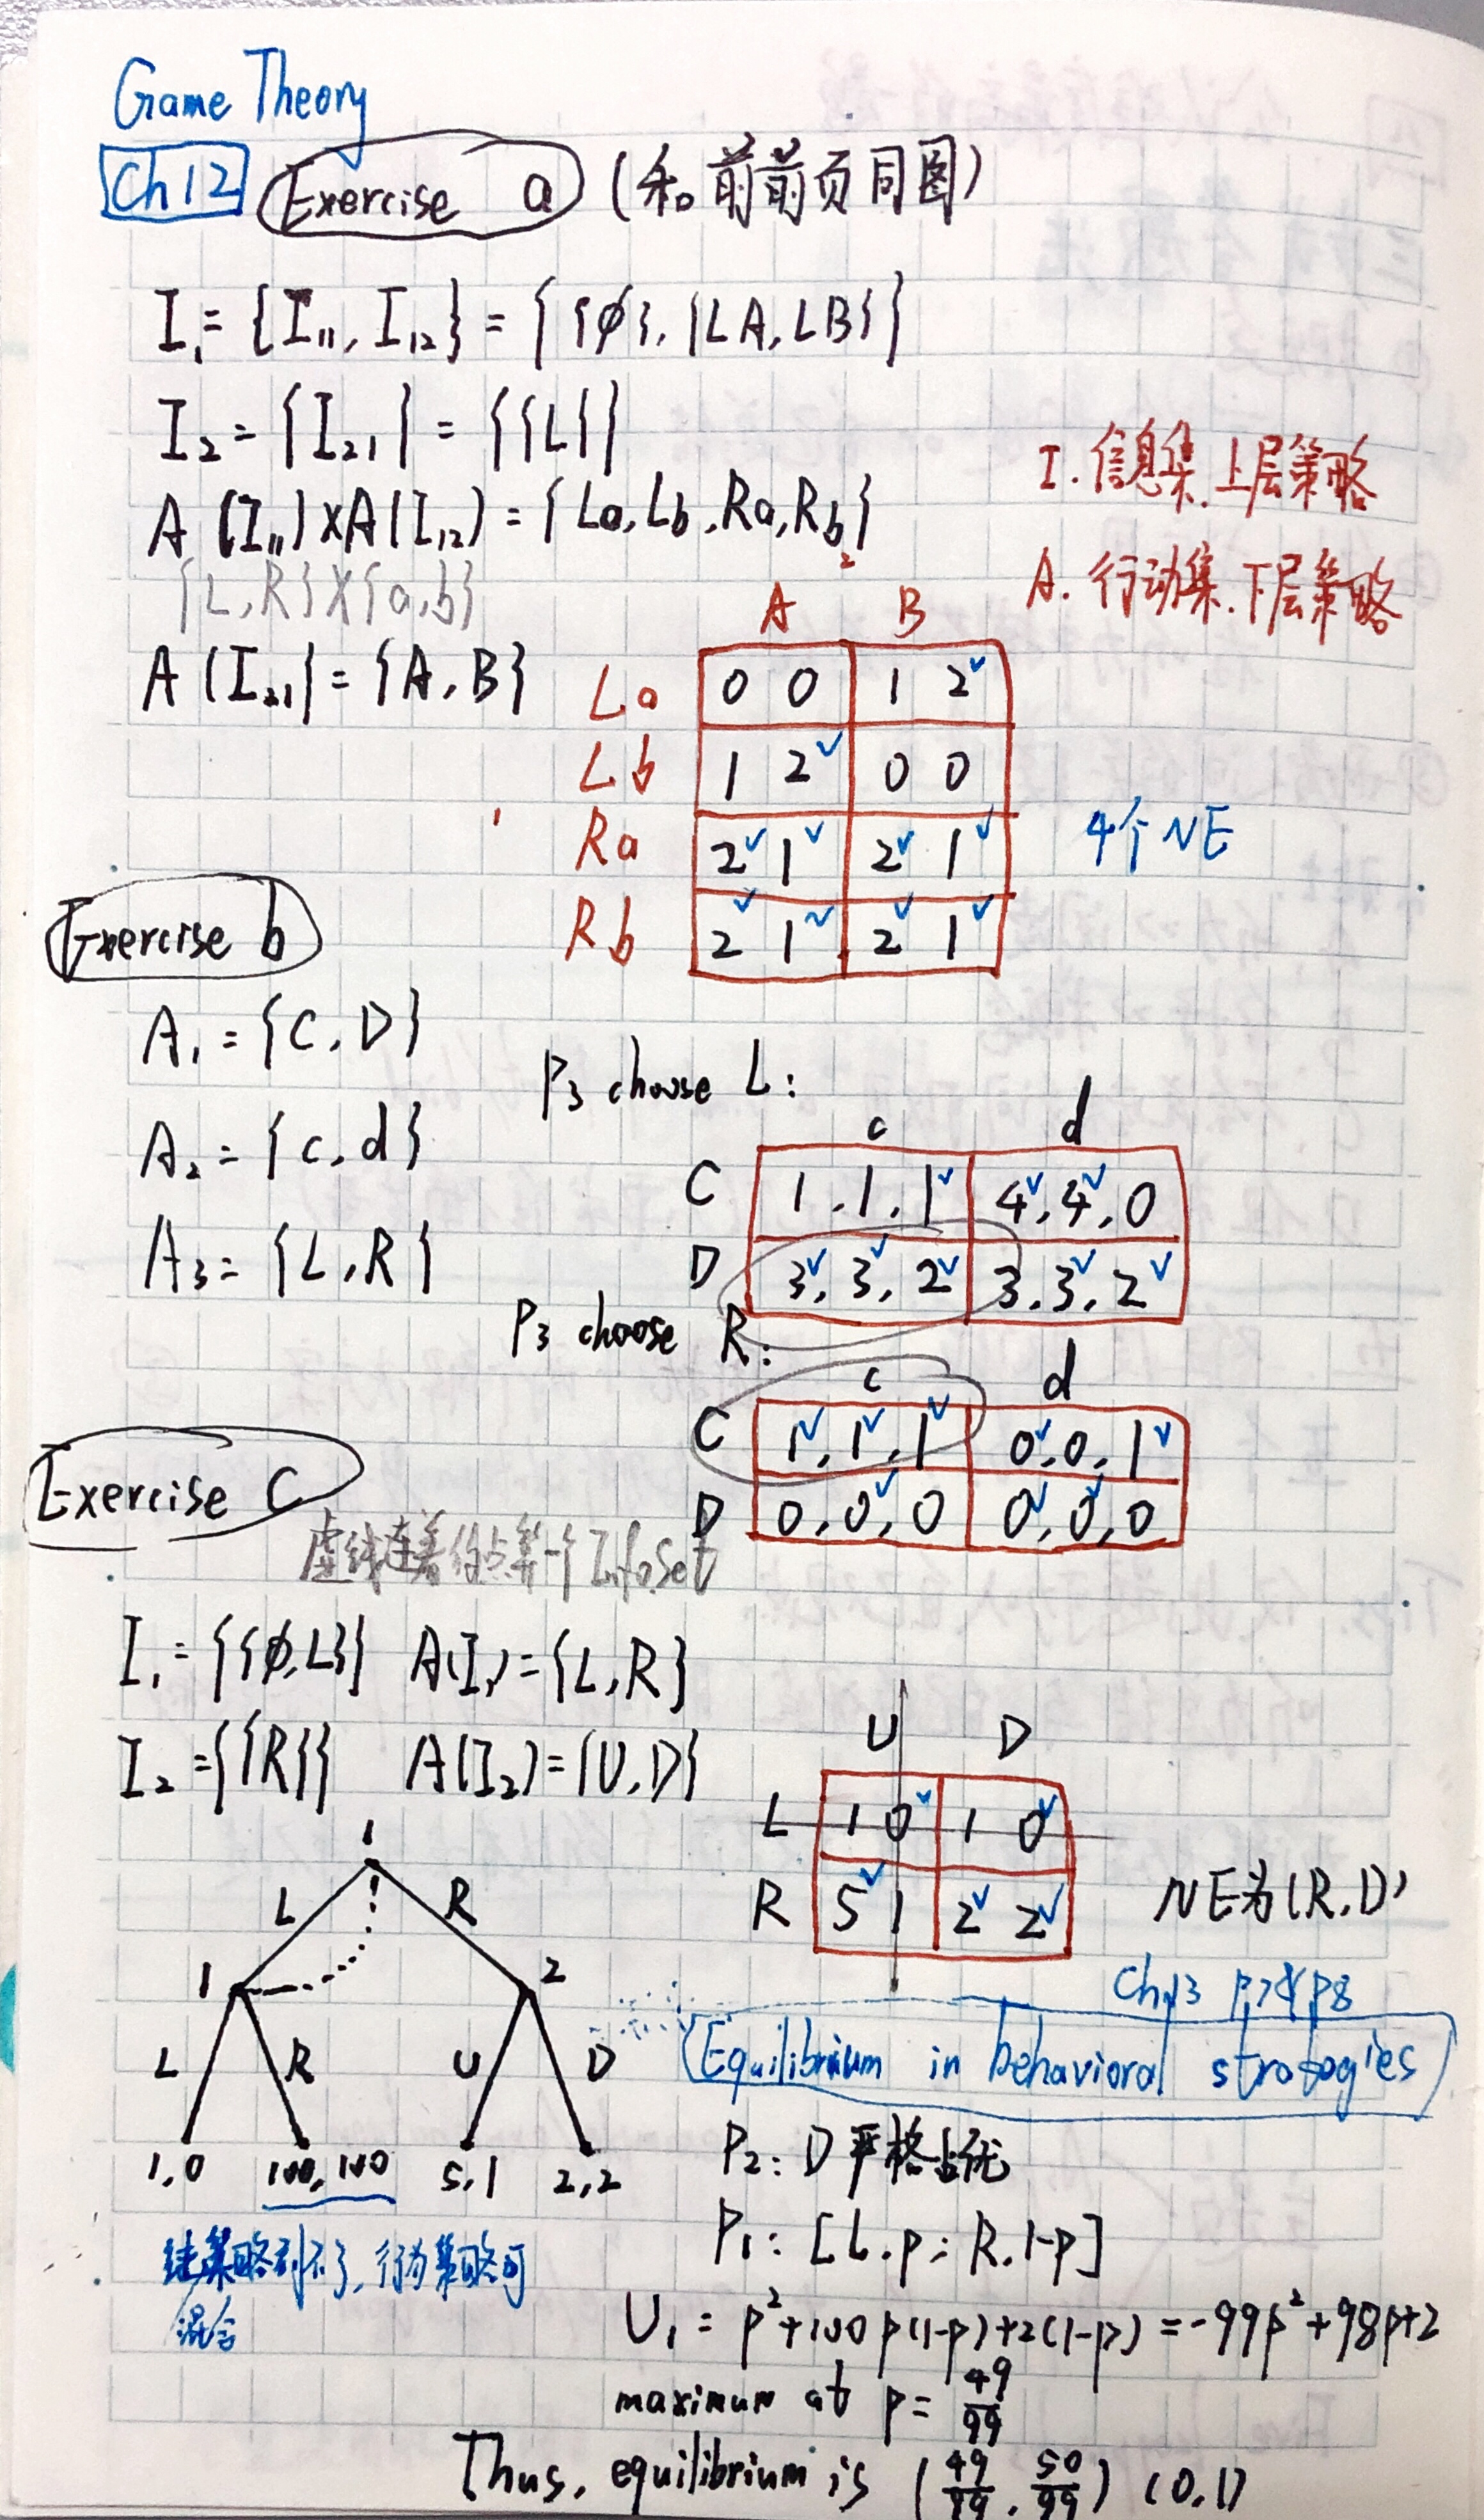 Game Theory
Ch12 Exercise a (和前前页同图)
I₁ = {I₁₁, I₁₂} = {{ø}, {LA, LB}}
I₂ = {I₂₁} = {{L}}
I. 信息集. 上层策略
A (I₁₁) x A(I₁₂) = {La, Lb, Ra, Rb}
{L, R} x {a, b}
A. 行动集. 下层策略
2
A B
A (I₂₁) = {A, B}
La 0 0 1 2✓
Lb 1 2✓ 0 0
1
Ra 2✓ 1✓ 2✓ 1✓
4个NE
Rb 2✓ 1✓ 2✓ 1✓
Exercise b
A₁ = {C, D}
P₃ choose L:
c d
A₂ = {c, d}
C 1, 1, 1✓ 4✓, 4✓, 0
A₃ = {L, R}
D 3✓, 3✓, 2✓ 3, 3✓, 2✓
P₃ choose R:
c d
C 1✓, 1✓, 1✓ 0✓, 0, 1✓
D 0, 0✓, 0 0✓, 0✓, 0
Exercise C
虚线连着的点算一个Infoset
I₁ = {{ø, L}} A(I₁) = {L, R}
I₂ = {{R}} A(I₂) = {U, D}
U D
L 1 0✓ 1 0✓
R 5✓ 1 2✓ 2✓
NE为(R, D)
1
L R
1 2
L R U D
1,0 100,100 5,1 2,2
纯策略到不了, 行为策略可
混合
Ch13 P7&P8
Equilibrium in behavioral strategies
P₂: D 严格占优
P₁: [L, p; R, 1-p]
U₁ = p² + 100p(1-p) + 2(1-p) = -99p² + 98p + 2
maximum at p = 49/99
Thus, equilibrium is (49/99, 50/99) (0, 1)